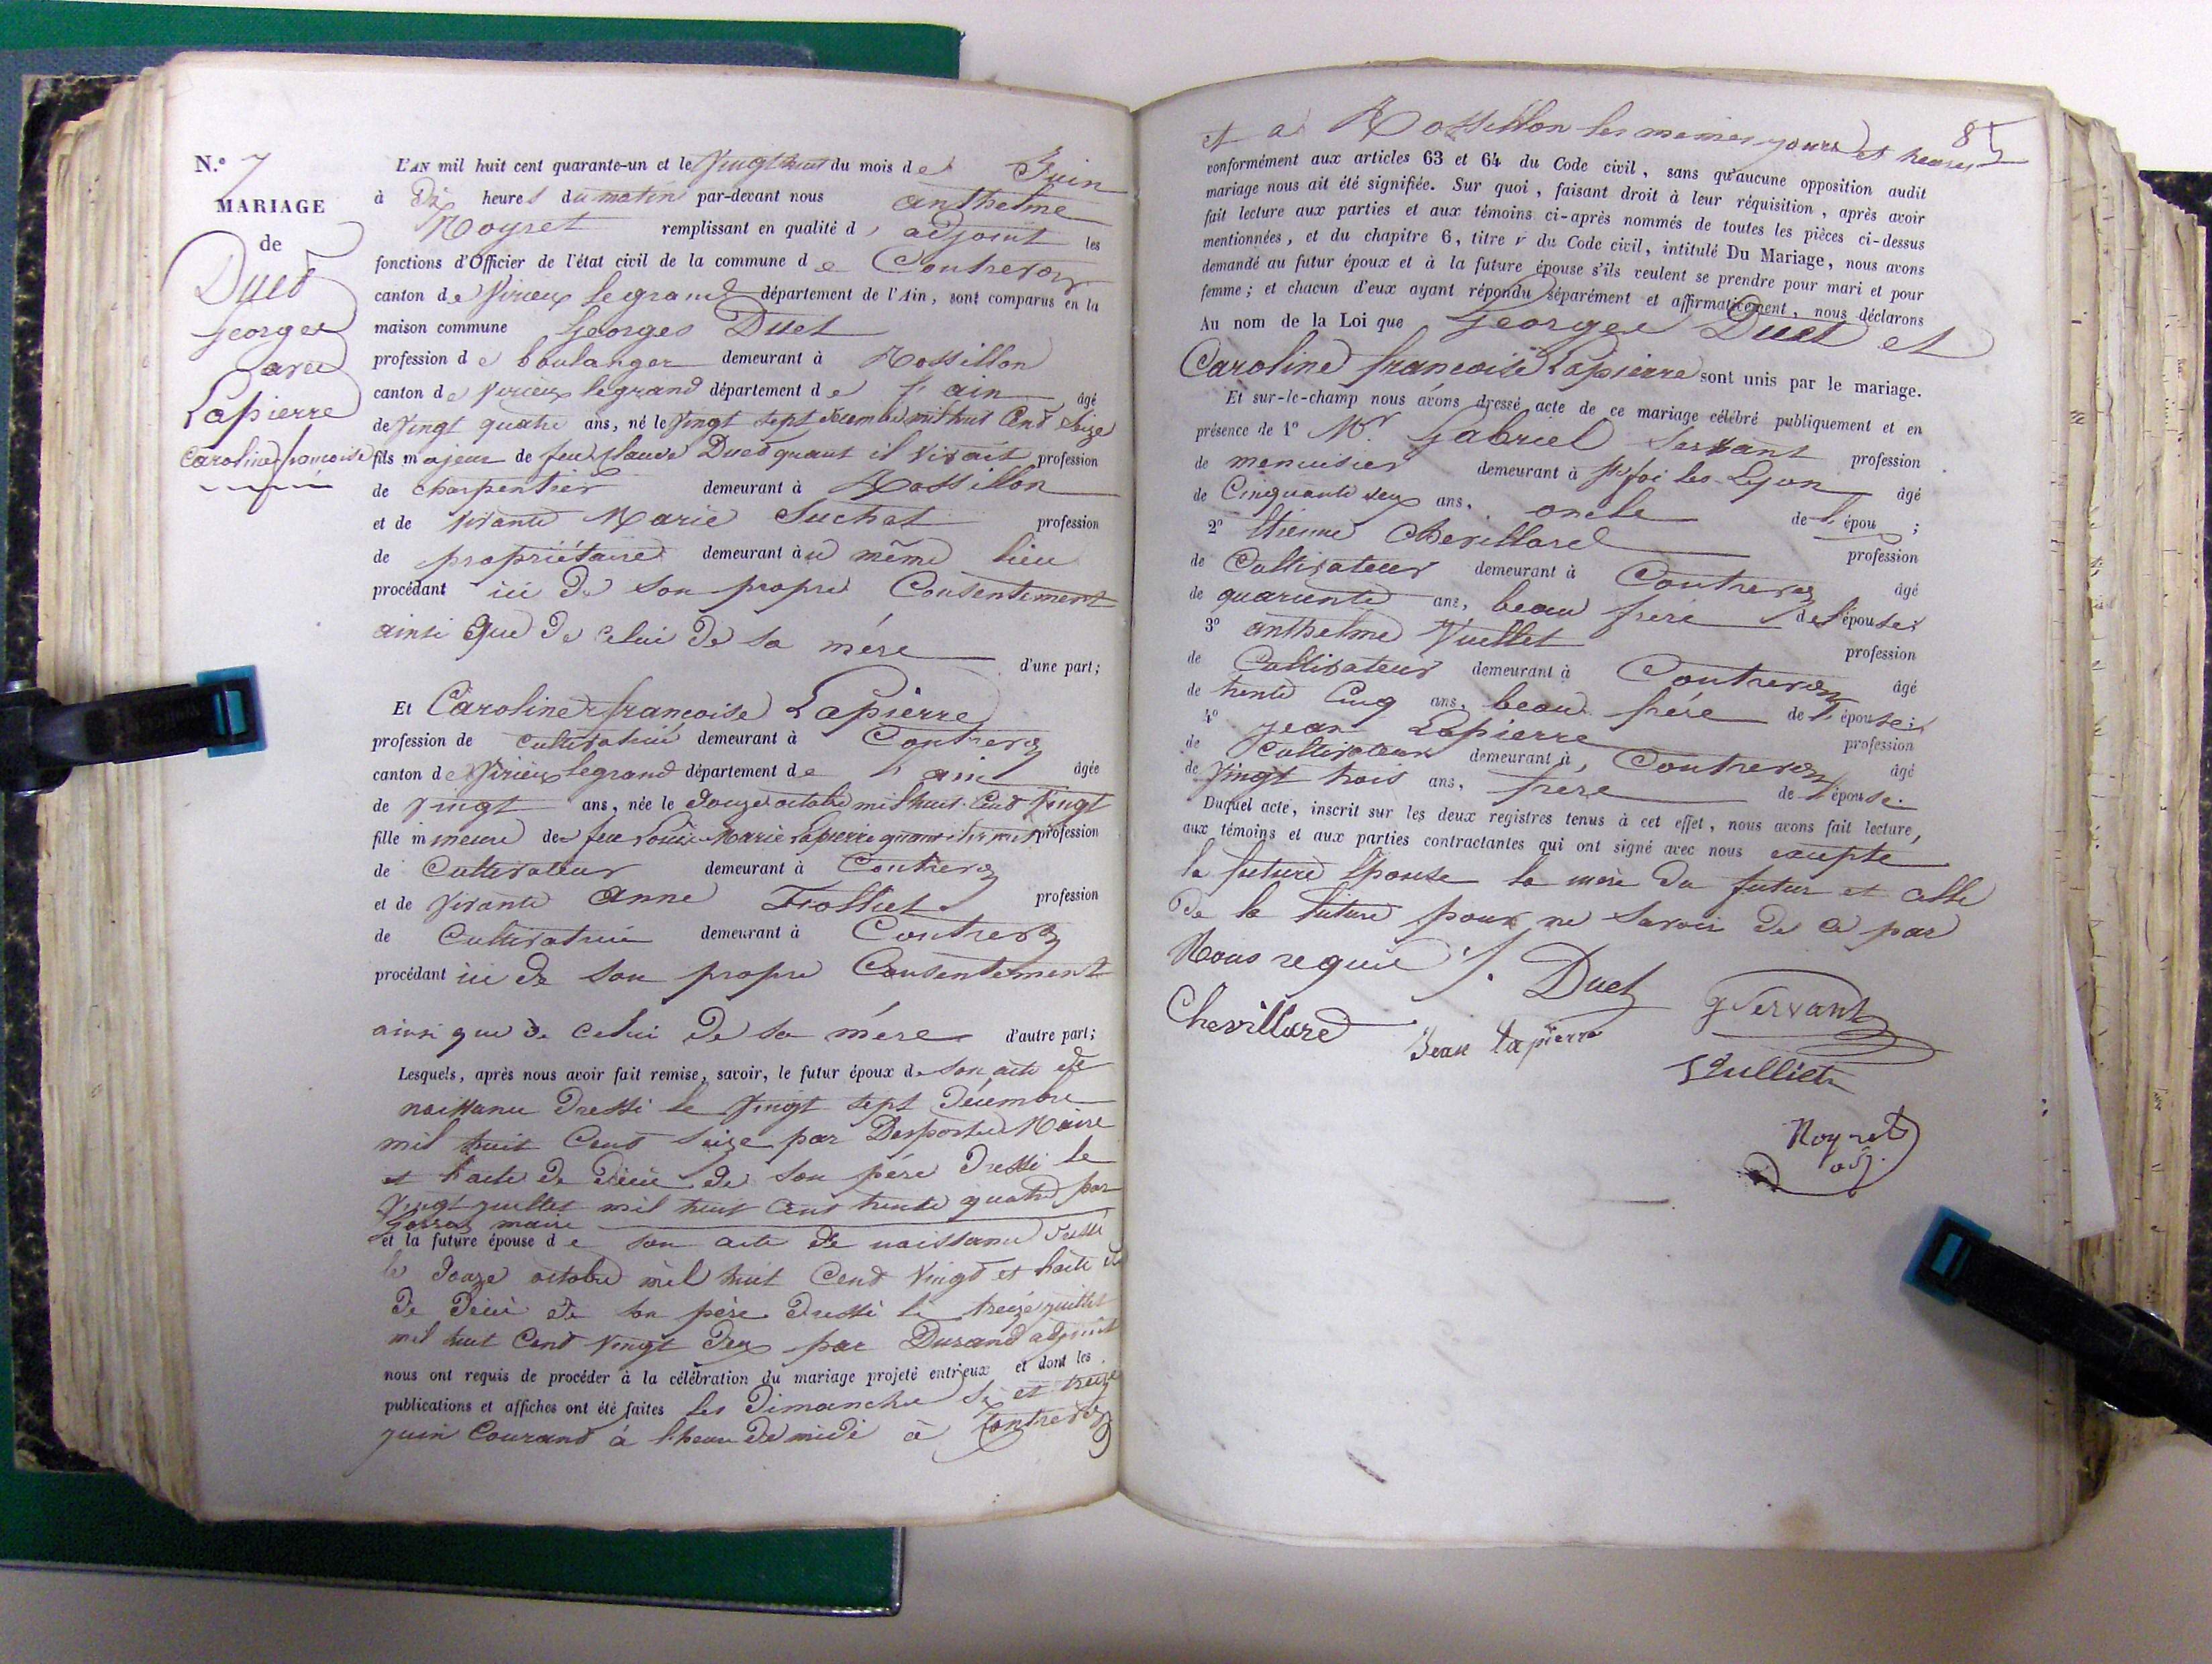 N.º 7
MARIAGE
de
Duet
Georges
avec
Lapierre
Caroline françoise
L'AN mil huit cent quarante-un et le Vingt huit du mois de Juin
à Dix heures du matin par-devant nous anthelme
Noyret remplissant en qualité d'adjoint les
fonctions d'Officier de l'état civil de la commune de Contrevoz
canton de Virieux legrand département de l'Ain, sont comparus en la
maison commune Georges Duet
profession de boulanger demeurant à Rossillon
canton de Virieux legrand département de l'ain âgé
de Vingt quatre ans, né le Vingt sept décembre mil huit Cent Seize
fils majeur de feu Claude Duet quant il Vivait profession
de charpentier demeurant à Rossillon
et de Vivante Marie Suchet profession
de propriétaire demeurant àu même lieu
procédant ici De son propre Consentement
ainsi Que De Celui De sa mère d'une part;
Et Caroline françoise Lapierre
profession de cultivatrice demeurant à Contrevoz
canton de Virieux legrand département de l'ain âgée
de Vingt ans, née le Douze octobre mil huit Cent Vingt
fille mineure de feu Louis Marie Lapierre quant il vivait profession
de Cultivateur demeurant à Contrevoz
et de Vivante Anne Trolliet profession
de Cultivatrice demeurant à Contrevoz
procédant ici de son propre Consentement
ainsi que De Celui De sa mère d'autre part;
Lesquels, après nous avoir fait remise, savoir, le futur époux de son acte de
naissance Dressé le Vingt sept Décembre
mil huit Cent Seize par Desportes Maire
et l'acte De Décès De son père Dressé le
Vingt juillet mil huit Cent trente quatre par
maire
et la future épouse de son acte de naissance Dressé
le Douze octobre mil huit Cent Vingt et l'acte
De Décès De son père Dressé le treize juillet
mil huit Cent Vingt Deux par Durand adjoint
nous ont requis de procéder à la célébration du mariage projeté entr'eux et dont les
publications et affiches ont été faites les Dimanches Six et treize
juin Courant à l'heure De midi à Contrevoz
85
et à Rossillon les memes jours et heures
conformément aux articles 63 et 64 du Code civil, sans qu'aucune opposition audit
mariage nous ait été signifiée. Sur quoi, faisant droit à leur réquisition, après avoir
fait lecture aux parties et aux témoins ci-après nommés de toutes les pièces ci-dessus
mentionnées, et du chapitre 6, titre v du Code civil, intitulé Du Mariage, nous avons
demandé au futur époux et à la future épouse s'ils veulent se prendre pour mari et pour
femme; et chacun d'eux ayant répondu séparément et affirmativement, nous déclarons
Au nom de la Loi que Georges Duet et
Caroline françoise Lapierre sont unis par le mariage.
Et sur-le-champ nous avons dressé acte de ce mariage célébré publiquement et en
présence de 1º Mr Gabriel Servant profession
de menuisier demeurant à Ste foi les Lyon âgé
de Cinquante deux ans, oncle de l'épou ;
2º Etienne Chevillard profession
de Cultivateur demeurant à Contrevoz âgé
de quarante ans, beau frère de l'épouse;
3º anthelme Vuilliet profession
de Cultivateur demeurant à Contrevoz âgé
de trente Cinq ans, beau frère de l'épouse;
4º jean Lapierre profession
de Cultivateur demeurant à Contrevoz âgé
de Vingt trois ans, frère de l'épouse.
Duquel acte, inscrit sur les deux registres tenus à cet effet, nous avons fait lecture,
aux témoins et aux parties contractantes qui ont signé avec nous excepté
la future Epouse la mère du futur et celle
De la future pour ne Savoir De Ce par
Nous requis
Duet
G Servant
Chevillard
Jean Lapierre
Vulliet
Noyret
adj.